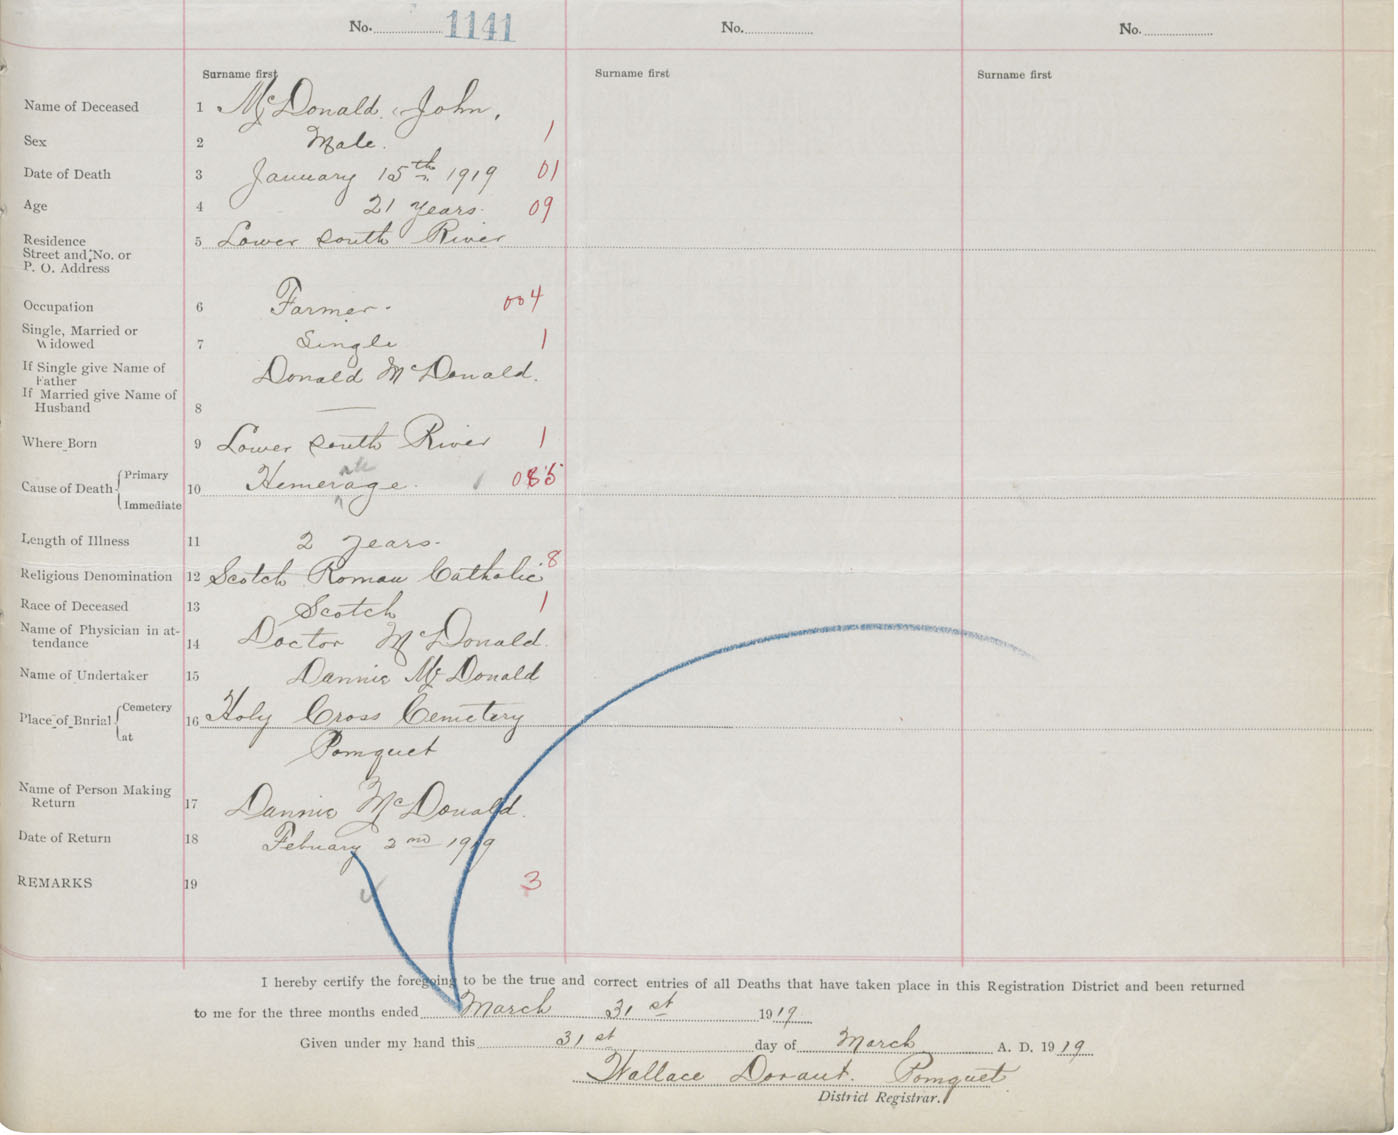 No. 1141 No. No.
Surname first Surname first Surname first
Name of Deceased 1 McDonald, John,
Sex 2 Male. 1
Date of Death 3 January 15th 1919 01
Age 4 21 years. 09
Residence 5 Lower South River
Street and No. or
P. O. Address
Occupation 6 Farmer. 004
Single, Married or
Widowed 7 Single 1
If Single give Name of
Father Donald McDonald.
If Married give Name of
Husband 8 —
Where Born 9 Lower South River 1
Cause of Death Primary
Immediate 10 Hemerage. 085
Length of Illness 11 2 years.
Religious Denomination 12 Scotch Roman Catholic 8
Race of Deceased 13 Scotch 1
Name of Physician in at-
tendance 14 Doctor McDonald.
Name of Undertaker 15 Dannie McDonald
Place of Burial Cemetery
at 16 Holy Cross Cemetery
Pomquet
Name of Person Making
Return 17 Dannie McDonald.
Date of Return 18 Febuary 2nd 1919
REMARKS 19 3
I hereby certify the foregoing to be the true and correct entries of all Deaths that have taken place in this Registration District and been returned
to me for the three months ended March 31st 1919
Given under my hand this 31st day of March A. D. 1919
Wallace Dorant. Pomquet
District Registrar.